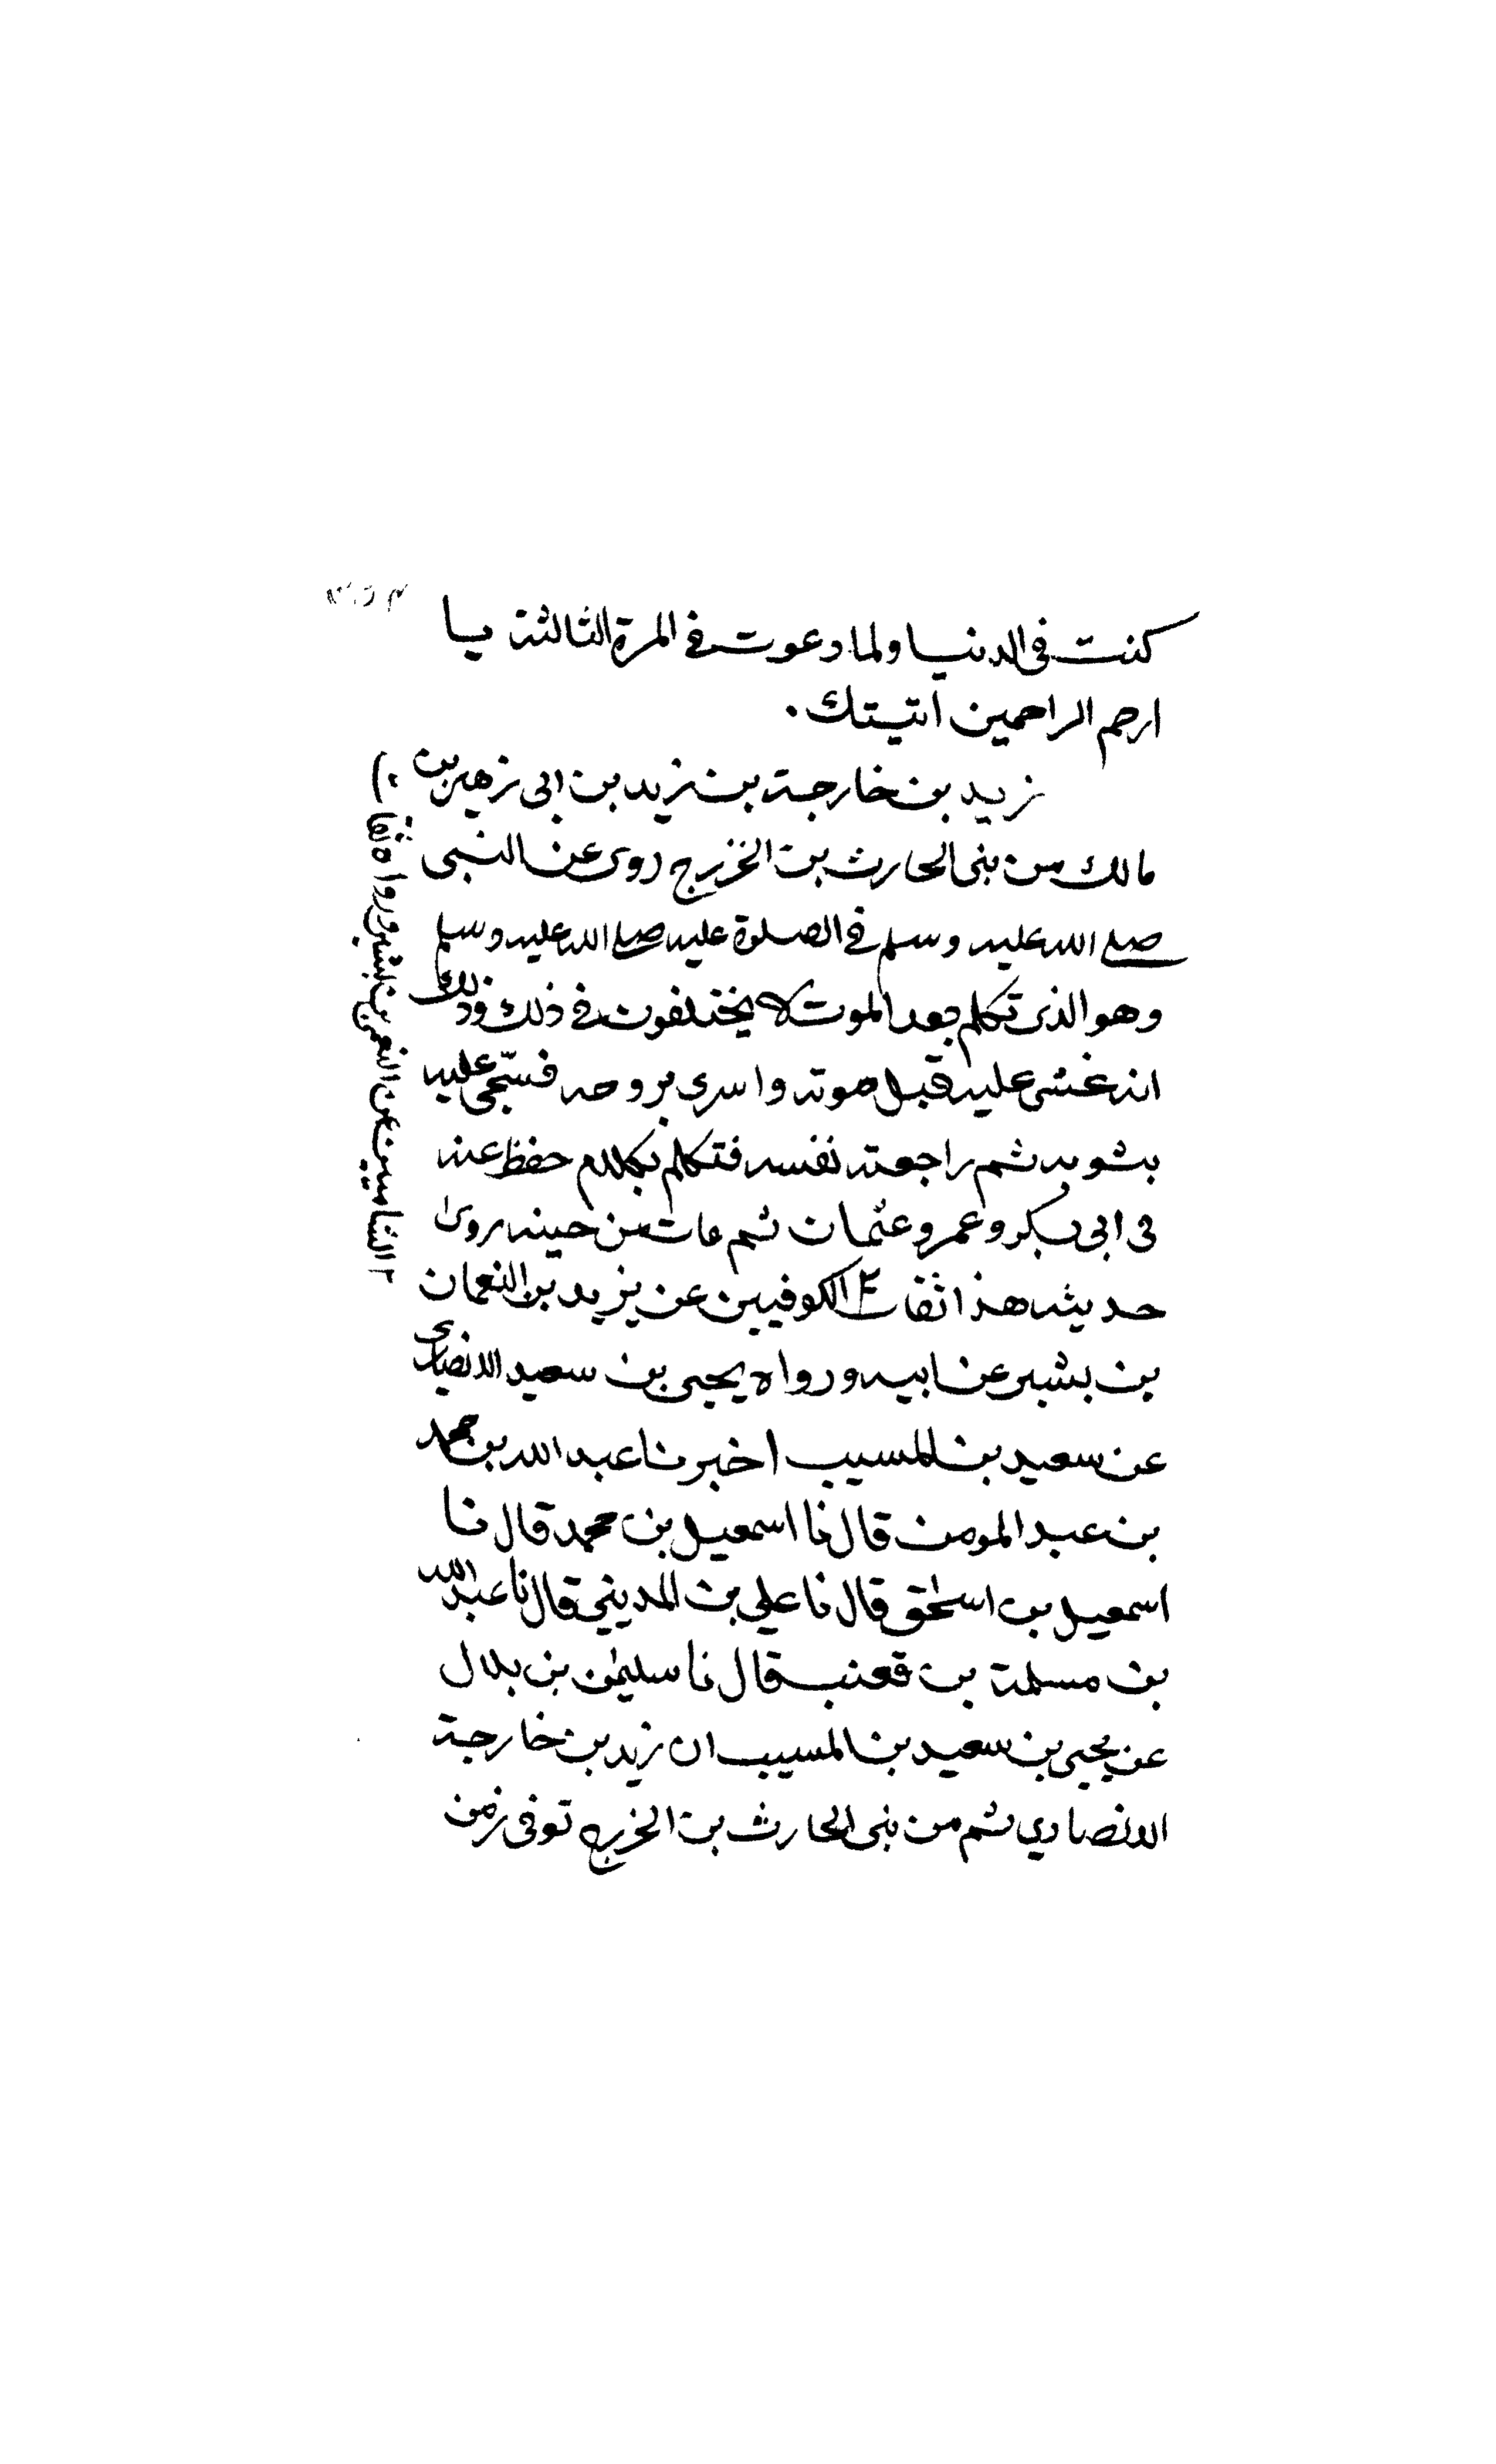 كنت فى الدنيا ولما دعوت فى المرة الثالثة يا
ارحم الراحمين اتيتك .
زيد بن خارجة بن زيد بن ابى زهير بن
مالك من بنى الحارث بن الخزرج روى عن النبى
صلى الله عليه وسلم فى الصلوة عليه صلى الله عليه وسلم
وهو الذى تكلم بعد الموت لا يختلفون فى ذلك وذلك
انه غشى عليه قبل موته واسرى بروحه فسجّى عليه
بثوبه ثم راجعته نفسه فتكلم بكلام حفظ عنه
فى ابى بكر وعمر وعثمان ثم مات من حينه روى
حديثه هذا ثقات الكوفيين عن يزيد بن النعمان
بن بشير عن ابيه ورواه يحيى بن سعيد الانصارى
عن سعيد بن المسيب اخبرنا عبد الله بن محمد
بن عبد المومن قال نا اسمعيل بن محمد قال نا
اسمعيل بن اسحٰق قال نا علي بن المديني قال نا عبد الله
بن مسلمة بن قعنب قال نا سليمٰن بن بلال
عن يحيى بن سعيد بن المسيب ان زيد بن خارجة
الانصاري ثم من بنى الحارث بن الخزرج توفى زمن
الشاميين عن النعمن بن بشير ورواه ثقات